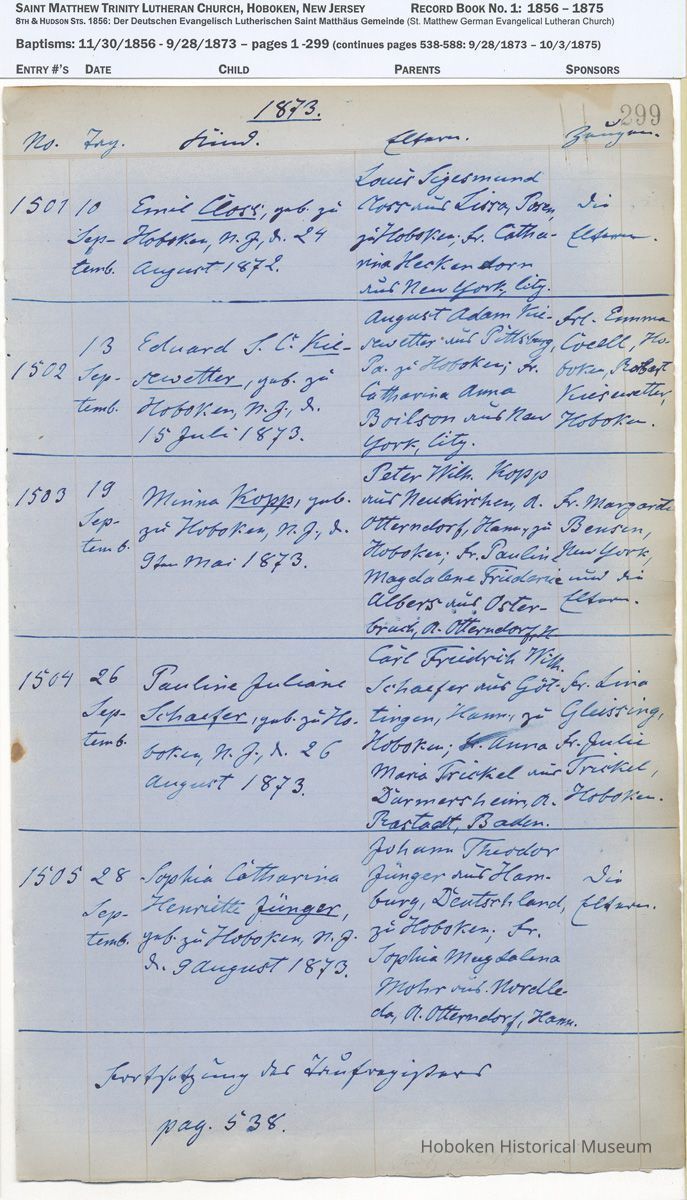 SAINT MATTHEW TRINITY LUTHERAN CHURCH, HOBOKEN, NEW JERSEY RECORD BOOK NO. 1: 1856 – 1875
8TH & HUDSON STS. 1856: Der Deutschen Evangelisch Lutherischen Saint Matthäus Gemeinde (St. Matthew German Evangelical Lutheran Church)
Baptisms: 11/30/1856 - 9/28/1873 – pages 1 -299 (continues pages 538-588: 9/28/1873 – 10/3/1875)
ENTRY #'S DATE CHILD PARENTS SPONSORS
1873.
299
No. Tag. Kind. Eltern. Zeugen.
1501
10
Sep-
temb.
Emil Closs, geb. zu
Hoboken, N. J., d. 24
August 1872.
Louis Sigesmund
Closs aus Lissa, Posen,
zu Hoboken; Fr. Catha-
rina Heckendorn
aus New York, City.
Die
Eltern.
1502
13
Sep-
temb.
Eduard S. C. Kie-
sewetter, geb. zu
Hoboken, N. J., d.
15 Juli 1873.
August Adam Kie-
sewetter aus Pittsburg,
Pa. zu Hoboken; Fr.
Catharina Anna
Boilson aus New
York, City.
Frl. Emma
Coell, Ho-
boken, Robert
Kiesewetter,
Hoboken.
1503
19
Sep-
temb.
Minna Kopp, geb.
zu Hoboken, N. J., d.
9ten Mai 1873.
Peter Wilh. Kopp
aus Neukirchen, A.
Otterndorf, Hann., zu
Hoboken; Fr. Pauline
Magdalene Friederie
Albers aus Oster-
bruch, A. Otterndorf, H.
Fr. Margarete
Bensen,
New York,
und die
Eltern.
1504
26
Sep-
temb.
Pauline Juliane
Schaefer, geb. zu Ho-
boken, N. J., d. 26
August 1873.
Carl Friedrich Wilh.
Schaefer aus Göt-
tingen, Hann., zu
Hoboken; Fr. Anna
Maria Trickel aus
Durmersheim, A.
Rastadt, Baden.
Fr. Lina
Glussing,
Fr. Julie
Trickel,
Hoboken.
1505
28
Sep-
temb.
Sophia Catharina
Henriette Jünger,
geb. zu Hoboken, N. J.
d. 9 August 1873.
Johann Theodor
Jünger aus Ham-
burg, Deutschland,
zu Hoboken; Fr.
Sophia Magdalena
Mohr aus Nordle-
da, A. Otterndorf, Hann.
Die
Eltern.
Fortsetzung des Taufregisters
pag. 538.
Hoboken Historical Museum